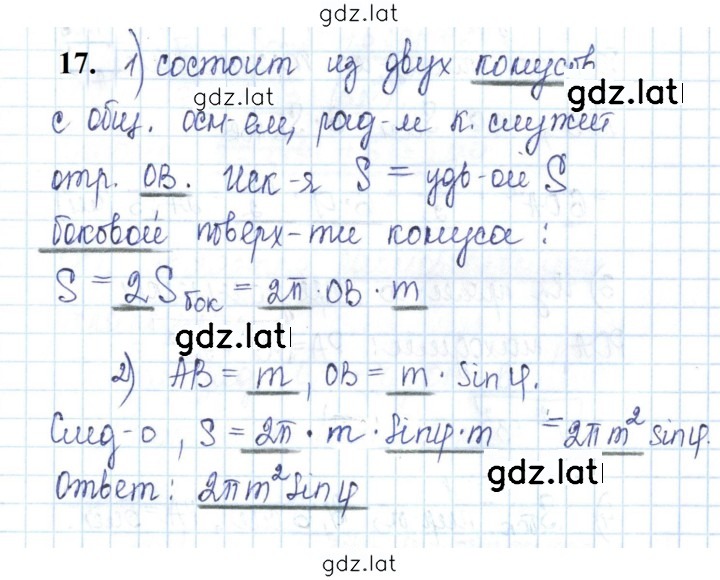 gdz.lat
17. 1) состоит из двух конусов
gdz.lat
gdz.lat
с общ. осн-ем, рад-м к. служит
отр. ОВ. Иск-я S = удв-ой S
боковой поверх-ти конуса:
S = 2 S бок = 2π · ОВ · m
gdz.lat
2) АВ = m, ОВ = m · sin φ.
След-о, S = 2π · m · sin φ · m = 2πm² sin φ.
gdz.lat
Ответ: 2πm² sin φ
gdz.lat